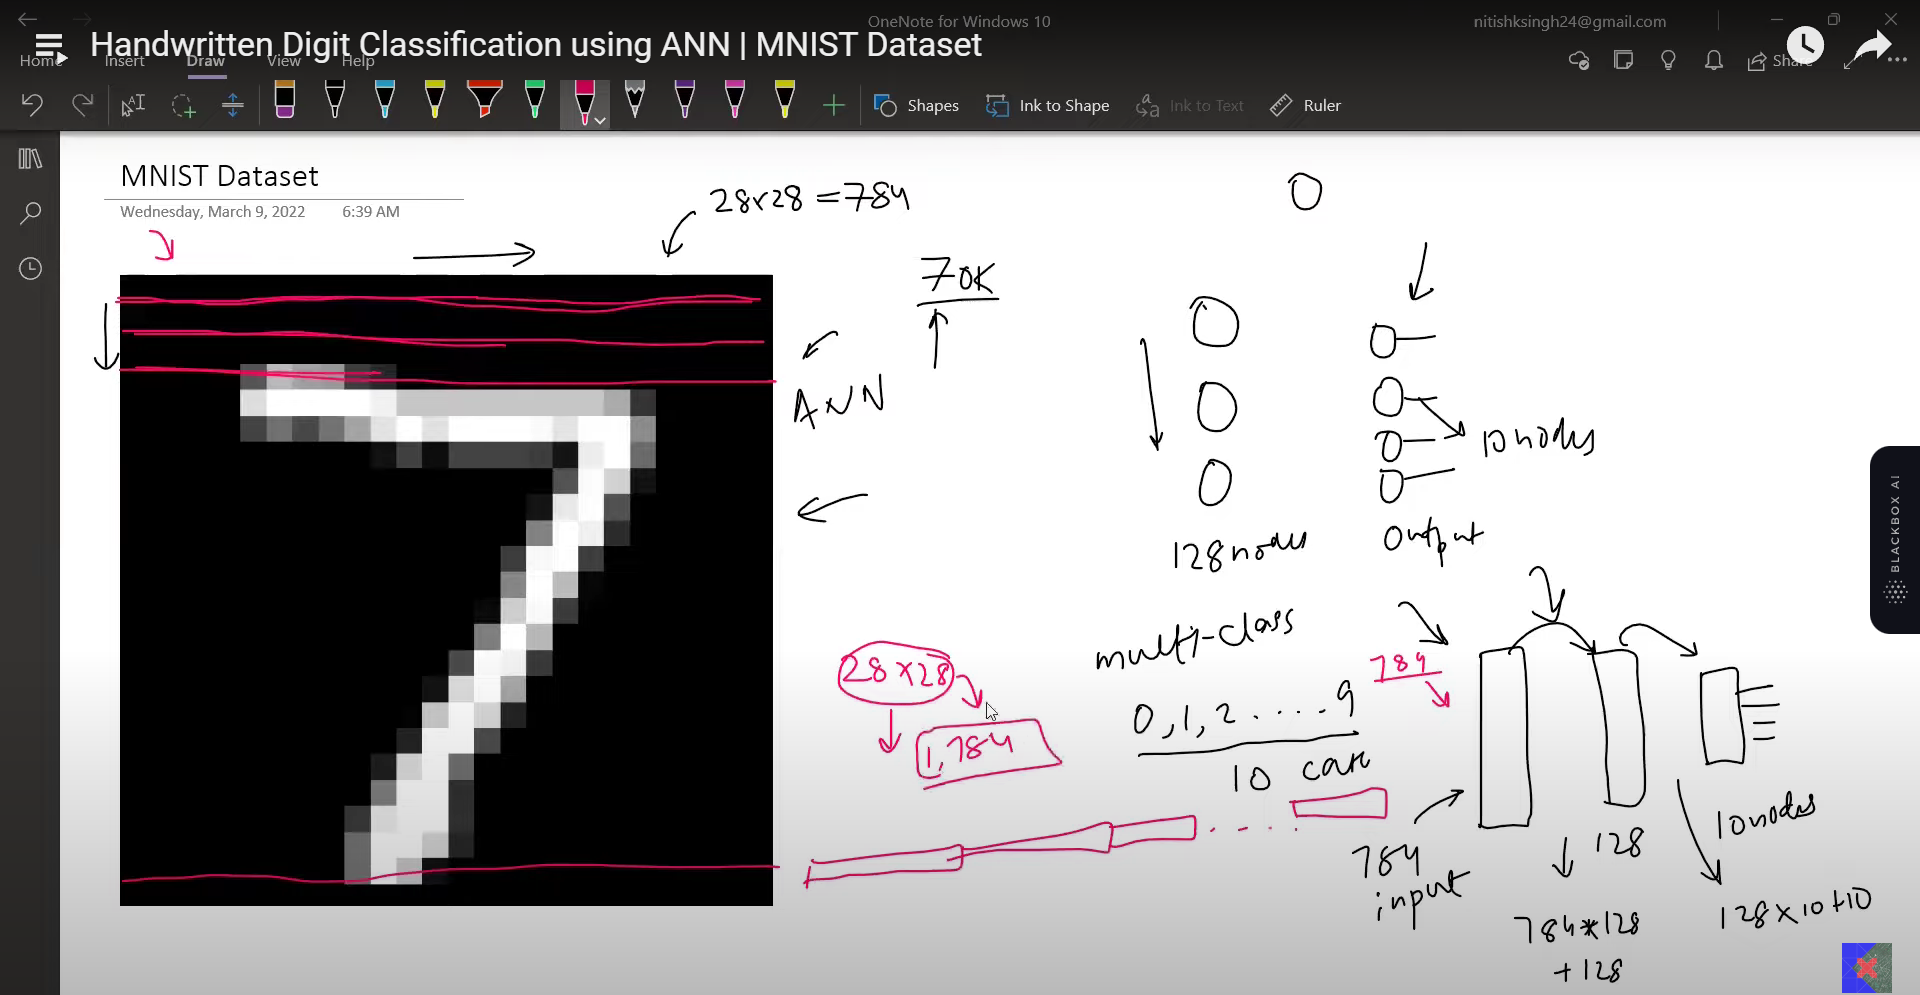 OneNote for Windows 10
nitishksingh24@gmail.com
Handwritten Digit Classification using ANN | MNIST Dataset
Home Insert Draw View Help
Share
Shapes
Ink to Shape
Ink to Text
Ruler
MNIST Dataset
Wednesday, March 9, 2022 6:39 AM
28x28 = 784
70K
ANN
10 nodes
128 nodes
output
multi-class
0, 1, 2 . . . . 9
10
28 x 28
1, 784
784
784
input
128
784*128
+ 128
10 nodes
128 x 10 + 10
BLACKBOX AI